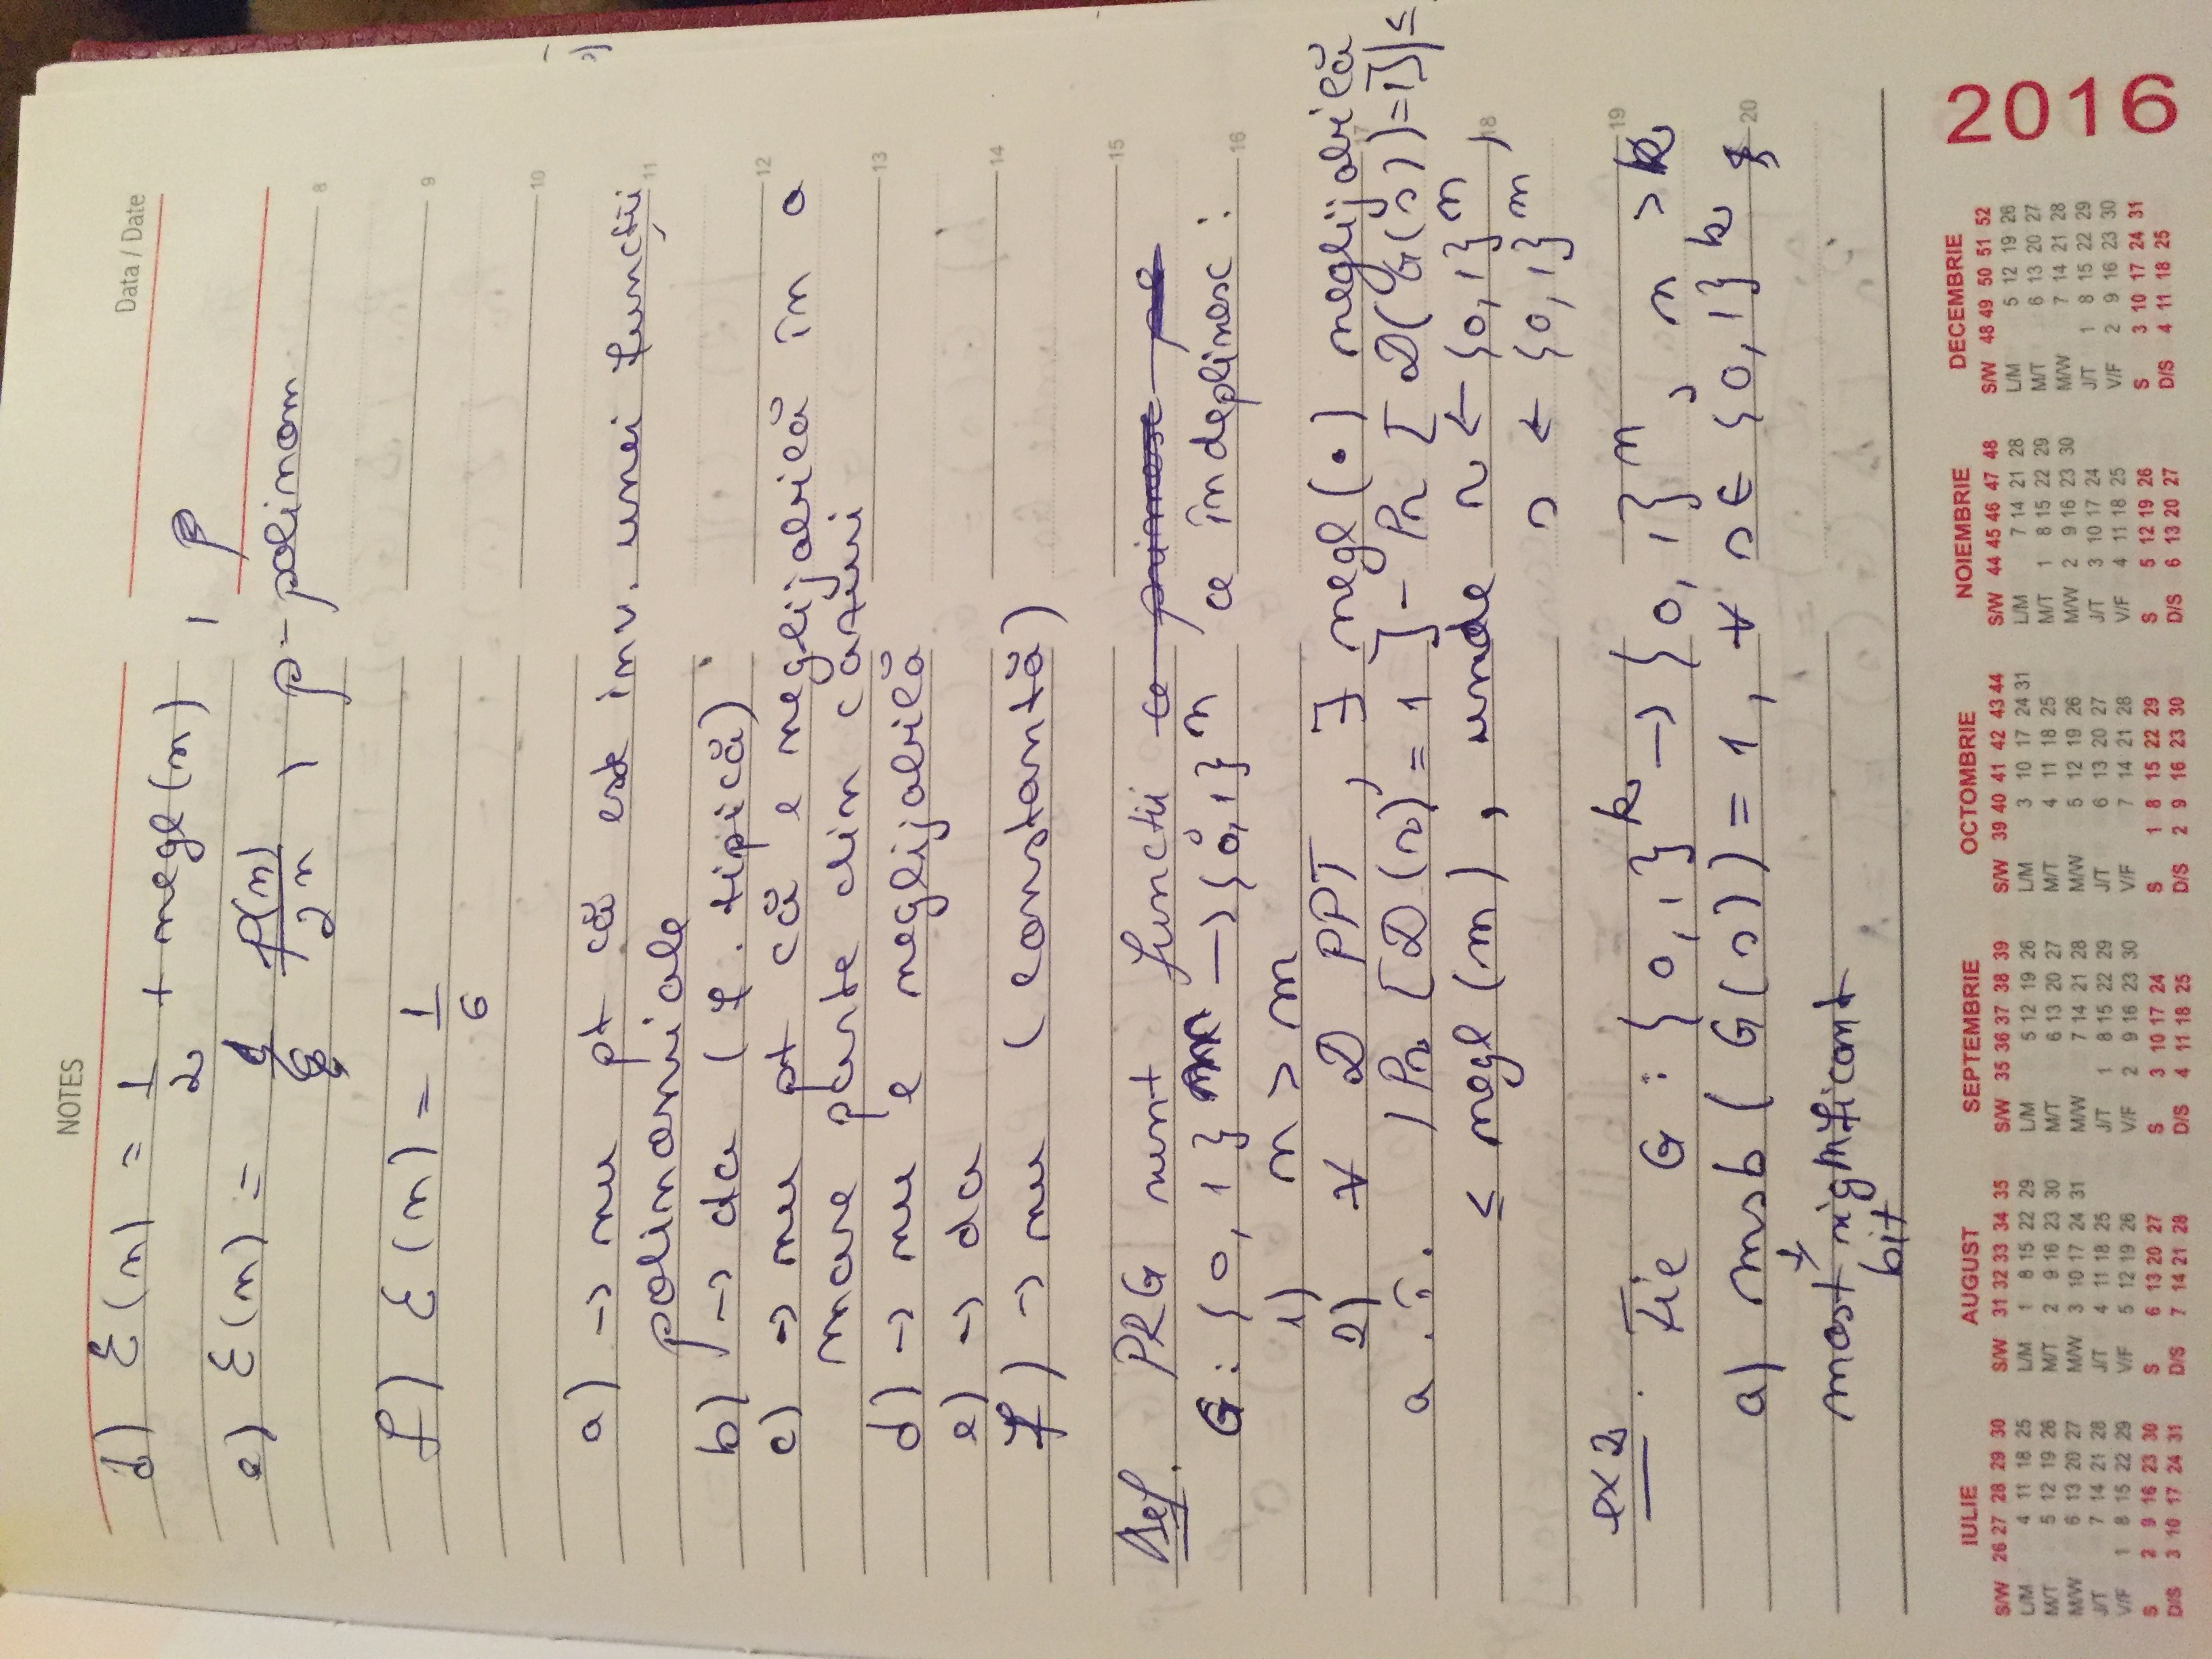 NOTES
Data / Date
d) ε(n) = 1/2 + negl(n) , p
e) ε(n) = p(n)/2^n , p - polinom
8
f) ε(n) = 1/6
9
10
a) → nu pt că este inv. unei funcții
11
polinomiale
b) → da (f. tipică)
12
c) → nu pt că e neglijabilă în o
mare parte din cazuri
13
d) → nu e neglijabilă
e) → da
14
f) → nu (constantă)
15
Def. PRG sunt funcții ce primesc pe
G : {0,1}^m → {0,1}^n ce îndeplinesc :
16
1) n > m
2) ∀ D PPT , ∃ negl(•) neglijabilă
17
a.î. |Pr [D(r) = 1] - Pr [D(G(s)) = 1]| ≤
≤ negl(m) , unde r ← {0,1}^n ,
18
s ← {0,1}^m
ex 2.
19
Fie G : {0,1}^k → {0,1}^n , n > k
a) msb(G(s)) = 1, ∀ s ∈ {0,1}^k
20
↓
most significant
bit
IULIE
S/W 26 27 28 29 30
L/M 4 11 18 25
M/T 5 12 19 26
M/W 6 13 20 27
J/T 7 14 21 28
V/F 1 8 15 22 29
S 2 9 16 23 30
D/S 3 10 17 24 31
AUGUST
S/W 31 32 33 34 35
L/M 1 8 15 22 29
M/T 2 9 16 23 30
M/W 3 10 17 24 31
J/T 4 11 18 25
V/F 5 12 19 26
S 6 13 20 27
D/S 7 14 21 28
SEPTEMBRIE
S/W 35 36 37 38 39
L/M 5 12 19 26
M/T 6 13 20 27
M/W 7 14 21 28
J/T 1 8 15 22 29
V/F 2 9 16 23 30
S 3 10 17 24
D/S 4 11 18 25
OCTOMBRIE
S/W 39 40 41 42 43 44
L/M 3 10 17 24 31
M/T 4 11 18 25
M/W 5 12 19 26
J/T 6 13 20 27
V/F 7 14 21 28
S 1 8 15 22 29
D/S 2 9 16 23 30
NOIEMBRIE
S/W 44 45 46 47 48
L/M 7 14 21 28
M/T 1 8 15 22 29
M/W 2 9 16 23 30
J/T 3 10 17 24
V/F 4 11 18 25
S 5 12 19 26
D/S 6 13 20 27
DECEMBRIE
S/W 48 49 50 51 52
L/M 5 12 19 26
M/T 6 13 20 27
M/W 7 14 21 28
J/T 1 8 15 22 29
V/F 2 9 16 23 30
S 3 10 17 24 31
D/S 4 11 18 25
2016